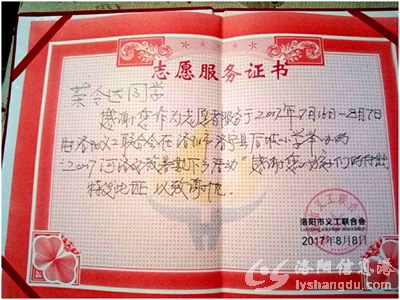 志愿服务证书
荣令达同学
感谢您作为志愿者服务于2017年7月16日-8月7日
由洛阳义工联合会在洛阳市洛宁县后 小学举办的
"2017河洛 暑期下乡活动"感谢您为孩子们的付出
特发此证 以致谢忱
洛阳市义工联合会
Luoyang volunteer association
2017年8月8日
洛阳信息港
lyshangdu.com